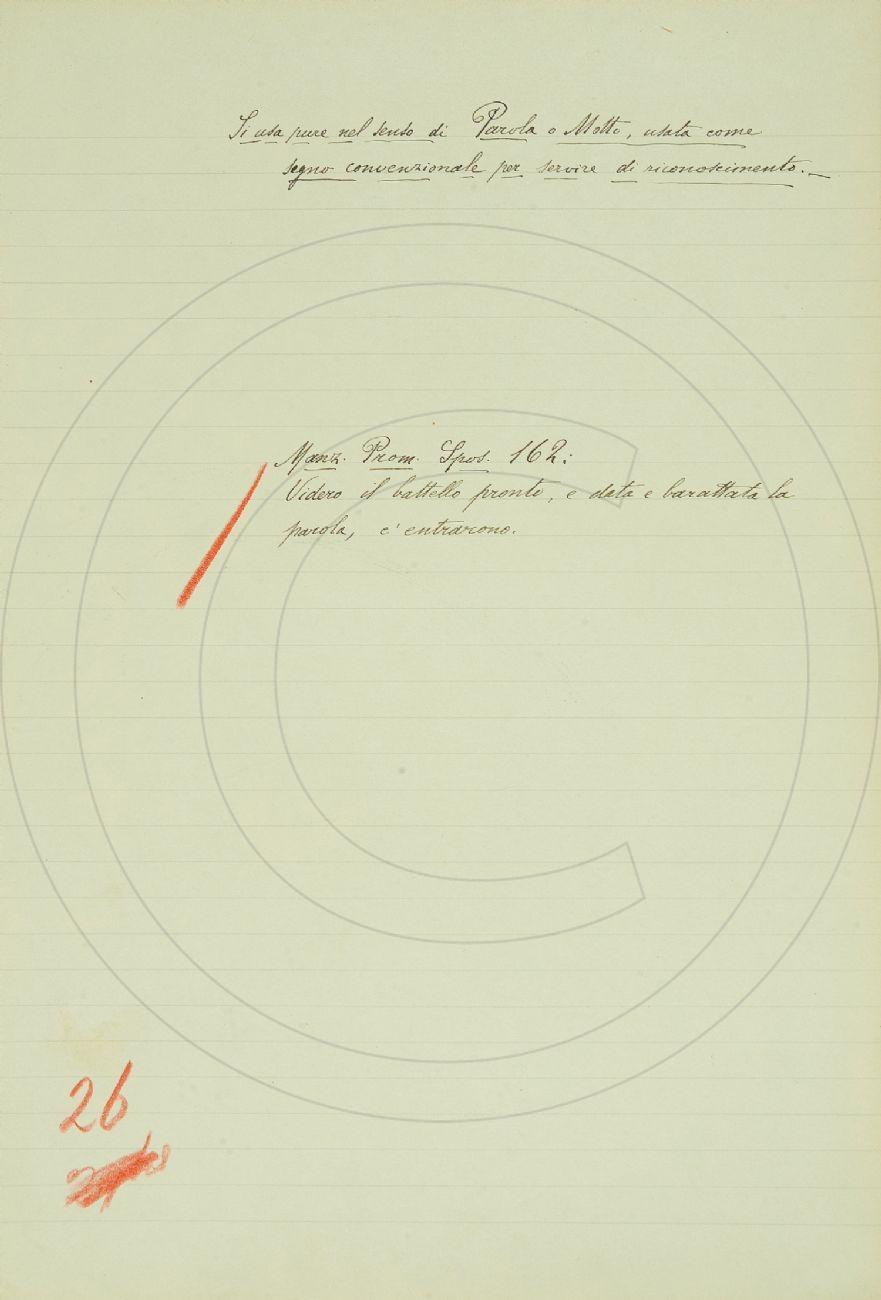 Si usa pure nel senso di Parola o Motto, usata come
segno convenzionale per servire di riconoscimento.—
Manz. Prom. Spos. 162:
Videro il battello pronto, e data e barattata la
parola, c'entrarono.
26